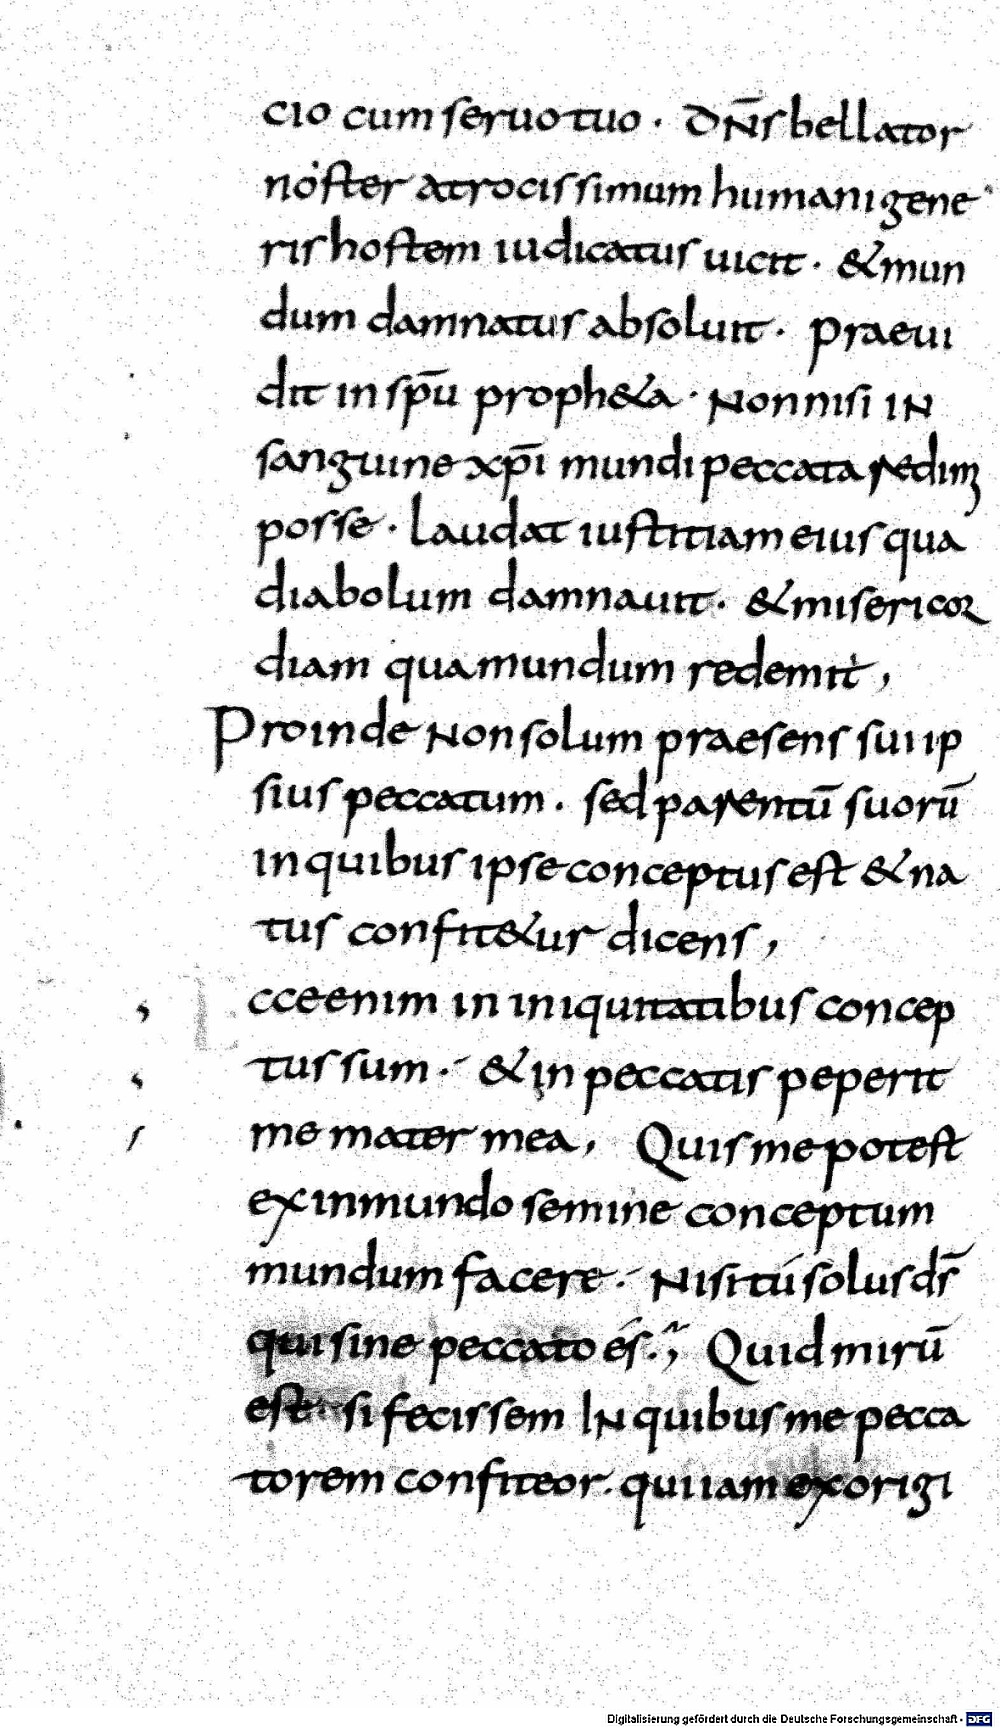 cio cum seruo tuo · DN̄s bellator
noster atrocissimum humani gene
ris hostem iudicatus uicit · & mun
dum damnatus absoluit · praeui
dit in sp̄u proph&a · Non nisi IN
sanguine xp̄i mundi peccata redim
posse · laudat iustitiam eius qua
diabolum damnauit · & misericor
diam qua mundum redemit,
Proinde Non solum praesens sui ip
sius peccatum . sed parentū suorū
in quibus ipse conceptus est & na
tus confit&ur dicens,
cce enim in iniquitatibus concep
tus sum · & in peccatis peperit
me mater mea, Quis me potest
ex inmundo semine conceptum
mundum facere · Nisi tú solus ds̄
qui sine peccato és ·, Quid mirū
est · si fecissem IN quibus me pecca
torem confiteor . qui iam ex origi
Digitalisierung gefördert durch die Deutsche Forschungsgemeinschaft - DFG